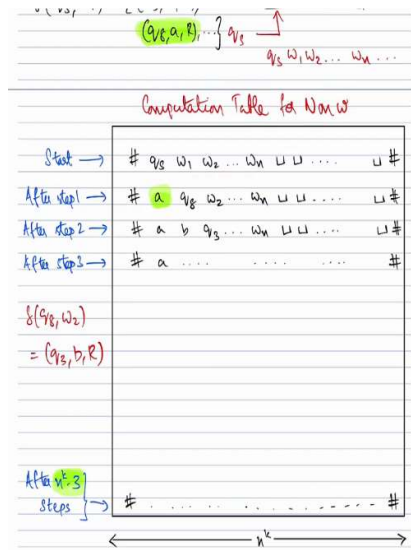 (q8,a,R),...} q3
q3 w1 w2 ... wn ...
Computation Table for N on w
Start → # q5 w1 w2 ... wn ⊔ ⊔ .... ⊔ #
After step 1 → # a q8 w2 ... wn ⊔ ⊔ .... ⊔ #
After step 2 → # a b q3 ... wn ⊔ ⊔ .... ⊔ #
After step 3 → # a .... .... .... #
δ(q8, w2)
= (q3, b, R)
After n^k-3
steps → # ... #
n^k